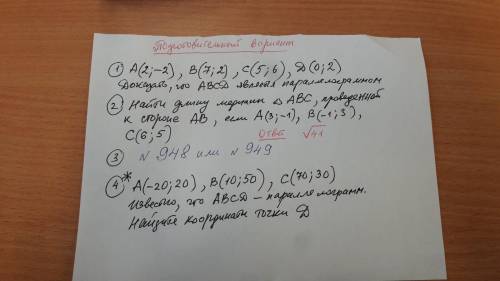 Подготовительный вариант
① A(2;-2), B(7;2), C(5;6), D(0;2)
Доказать, что ABCD является параллелограммом
② Найти длину медианы △ABC, проведенной
к стороне AB, если A(3;-1), B(-1;3),
C(6;5) Ответ √41
③ № 948 или № 949
④* A(-20;20), B(10;50), C(70;30)
Известно, что ABCD – параллелограмм.
Найдите координаты точки D